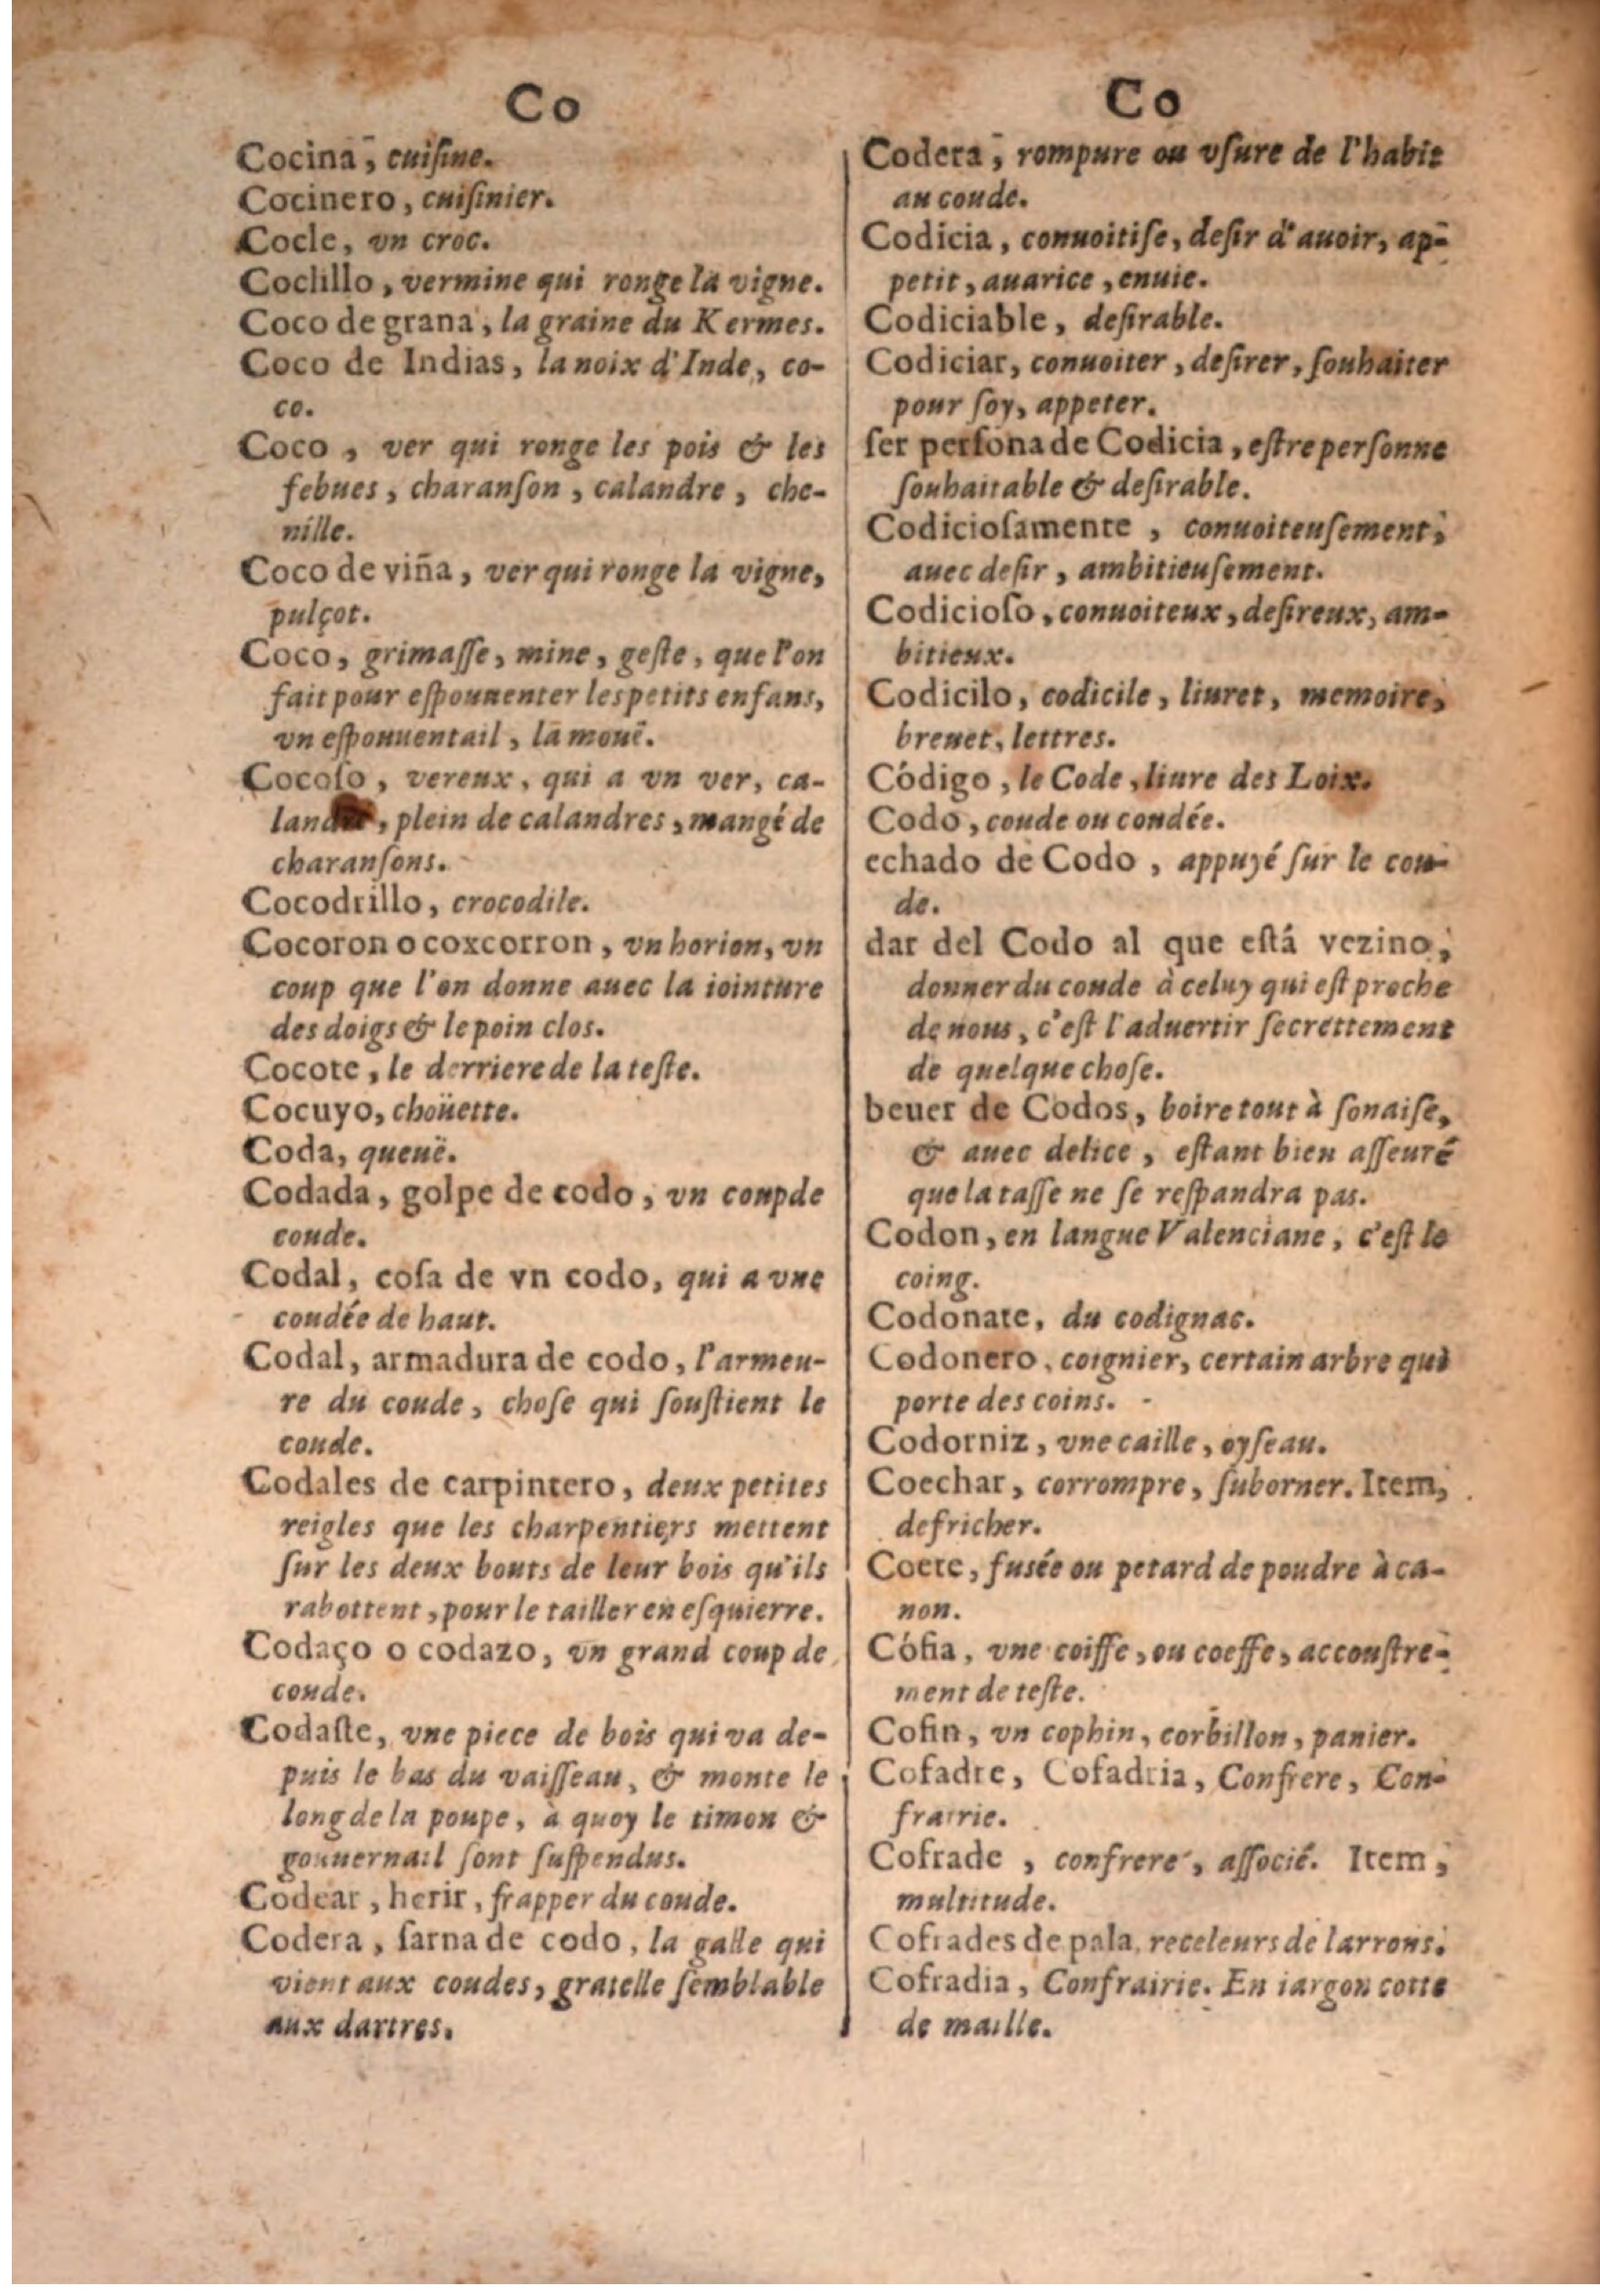 Co
Cocina, cuiſine.
Cocinero, cuiſinier.
Cocle, vn croc.
Coclillo, vermine qui ronge la vigne.
Coco de grana, la graine du Kermes.
Coco de Indias, la noix d'Inde, co-
co.
Coco, ver qui ronge les pois & les
febues, charanſon, calandre, che-
nille.
Coco de viña, ver qui ronge la vigne,
pulçot.
Coco, grimaſſe, mine, geſte, que l'on
fait pour eſpouuenter les petits enfans,
vn eſpouuentail, la mouë.
Cocoſo, vereux, qui a vn ver, ca-
, plein de calandres, mangé de
charanſons.
Cocodrillo, crocodile.
Cocoron o coxcorron, vn horion, vn
coup que l'on donne auec la iointure
des doigs & le poin clos.
Cocote, le derriere de la teſte.
Cocuyo, choüette.
Coda, queuë.
Codada, golpe de codo, vn coup de
coude.
Codal, coſa de vn codo, qui a vne
coudée de haut.
Codal, armadura de codo, l'armeu-
re du coude, choſe qui ſouſtient le
coude.
Codales de carpintero, deux petites
reigles que les charpentiers mettent
ſur les deux bouts de leur bois qu'ils
rabottent, pour le tailler en eſquierre.
Codaço o codazo, vn grand coup de
coude.
Codaſte, vne piece de bois qui va de-
puis le bas du vaiſſeau, & monte le
long de la poupe, à quoy le timon &
gouuernail ſont ſuſpendus.
Codear, herir, frapper du coude.
Codera, ſarna de codo, la galle qui
vient aux coudes, gratelle ſemblable
aux dartres.
Co
Codera, rompure ou vſure de l'habit
au coude.
Codicia, conuoitiſe, deſir d'auoir, ap-
petit, auarice, enuie.
Codiciable, deſirable.
Codiciar, conuoiter, deſirer, ſouhaiter
pour ſoy, appeter.
ſer perſona de Codicia, eſtre perſonne
ſouhaitable & deſirable.
Codicioſamente, conuoiteuſement,
auec deſir, ambitieuſement.
Codicioſo, conuoiteux, deſireux, am-
bitieux.
Codicilo, codicile, liuret, memoire,
breuet, lettres.
Código, le Code, liure des Loix.
Codo, coude ou coudée.
echado de Codo, appuyé ſur le cou-
de.
dar del Codo al que eſtá vezino,
donner du coude à celuy qui eſt proche
de nous, c'eſt l'aduertir ſecrettement
de quelque choſe.
beuer de Codos, boire tout à ſon aiſe,
& auec delice, eſtant bien aſſeuré
que la taſſe ne ſe reſpandra pas.
Codon, en langue Valenciane, c'eſt le
coing.
Codonate, du codignac.
Codonero, coignier, certain arbre qui
porte des coins.
Codorniz, vne caille, oyſeau.
Coechar, corrompre, ſuborner. Item,
defricher.
Coete, fusée ou petard de poudre à ca-
non.
Cófia, vne coiffe, ou coeffe, accouſtre-
ment de teſte.
Cofin, vn cophin, corbillon, panier.
Cofadre, Cofadria, Confrere, Con-
frairie.
Cofrade, confrere, aſſocié. Item,
multitude.
Cofrades de pala, receleurs de larrons.
Cofradia, Confrairie. En iargon cotte
de maille.